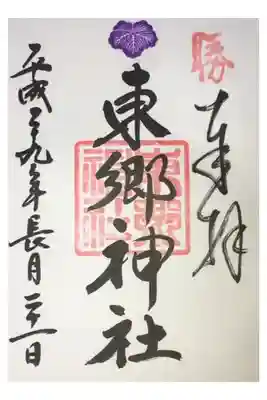 勝
奉拝
東郷神社
東郷神社
平成二十九年長月二十一日